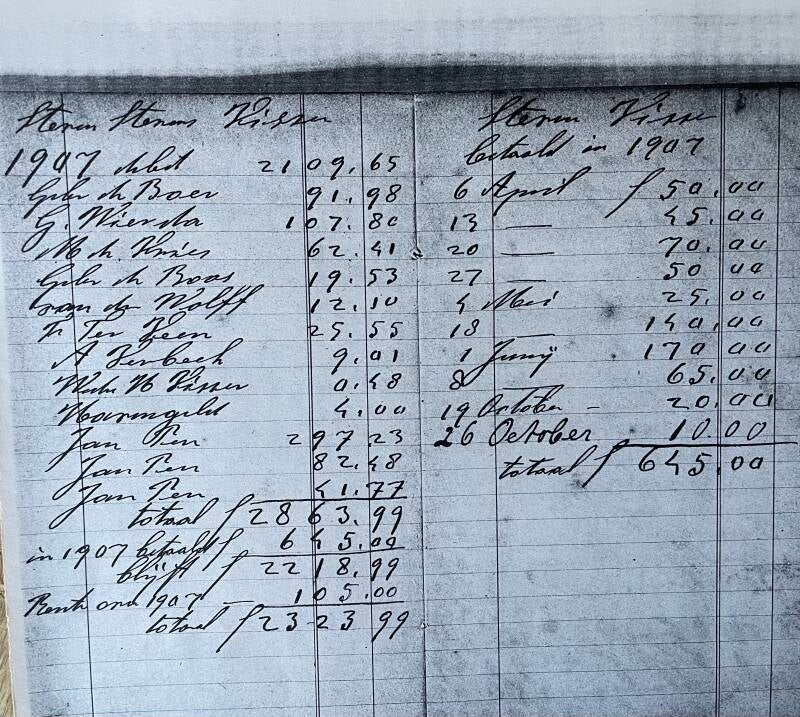 Visser
1907 debet 2109.65
Gebr de Boer 91.98
G. Wierda 107.80
M de Vries 62.41
Gebr de Boer 19.53
van der Wolff 12.10
ter Veen 25.55
A Verbeek 9.01
Wede H Visser 0.48
Havengeld 4.00
Jan Pen 297 23
Jan Pen 82.48
Jan Pen 41.77
totaal f 2863.99
in 1907 betaald f 645.00
blijft f 2218.99
Rente 1907 — 105.00
totaal f 2323 99
Visser
betaald in 1907
6 April f 50.00
13 — 45.00
20 — 70.00
27 — 50 00
4 Mei 25.00
18 — 140.00
1 Junij 170 00
8 — 65.00
19 October - 20.00
26 October 10.00
totaal f 645.00